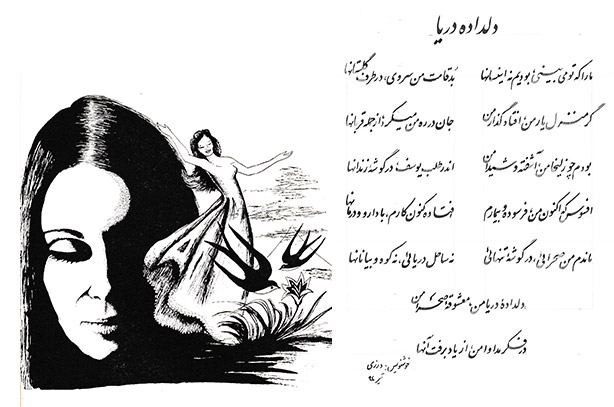 دلداده دریا
ما را که تو می بینی، بودیم نه اینسانها بُد قامت من سروی، در طرف گلستانها
گر منزل یار من، افتاد گذار من جان در ره من میکرد از جمله قربانها
بودم چو زلیخا من، آشفته و شیدا من اندر طلب یوسف، در گوشه زندانها
افسوس که اکنون من، فرسوده و بیمارم افتاده کنون کارم، با دارو و درمانها
ماندم من صحرائی، در گوشه تنهائی نه ساحل دریائی، نه کوه و بیابانها
دلداده دریا من، معشوقه صحرا من
در فکر مداوا من، از یاد برفت آنها
خوشنویس: درزی
تیر